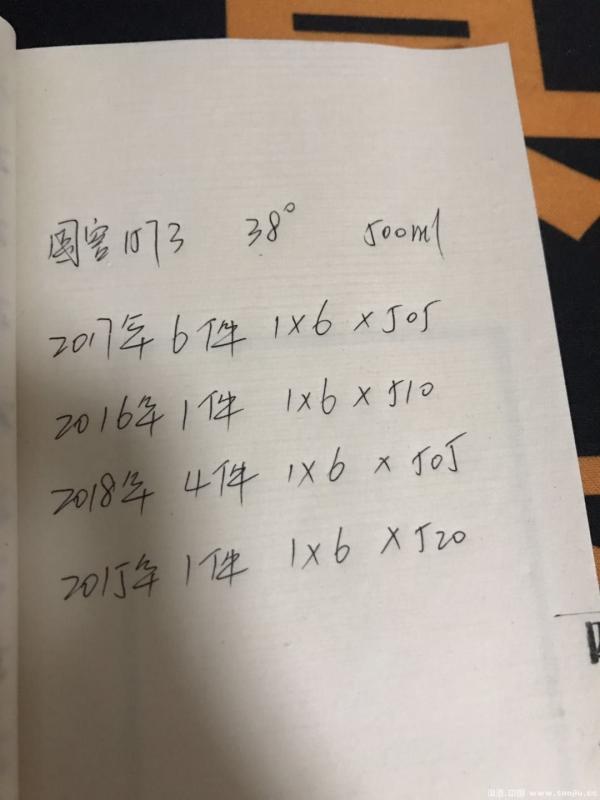 国窖1573 38° 500ml
2017年 6件 1×6 ×505
2016年 1件 1×6 ×510
2018年 4件 1×6 ×505
2015年 1件 1×6 ×520
www.taojiu.cc